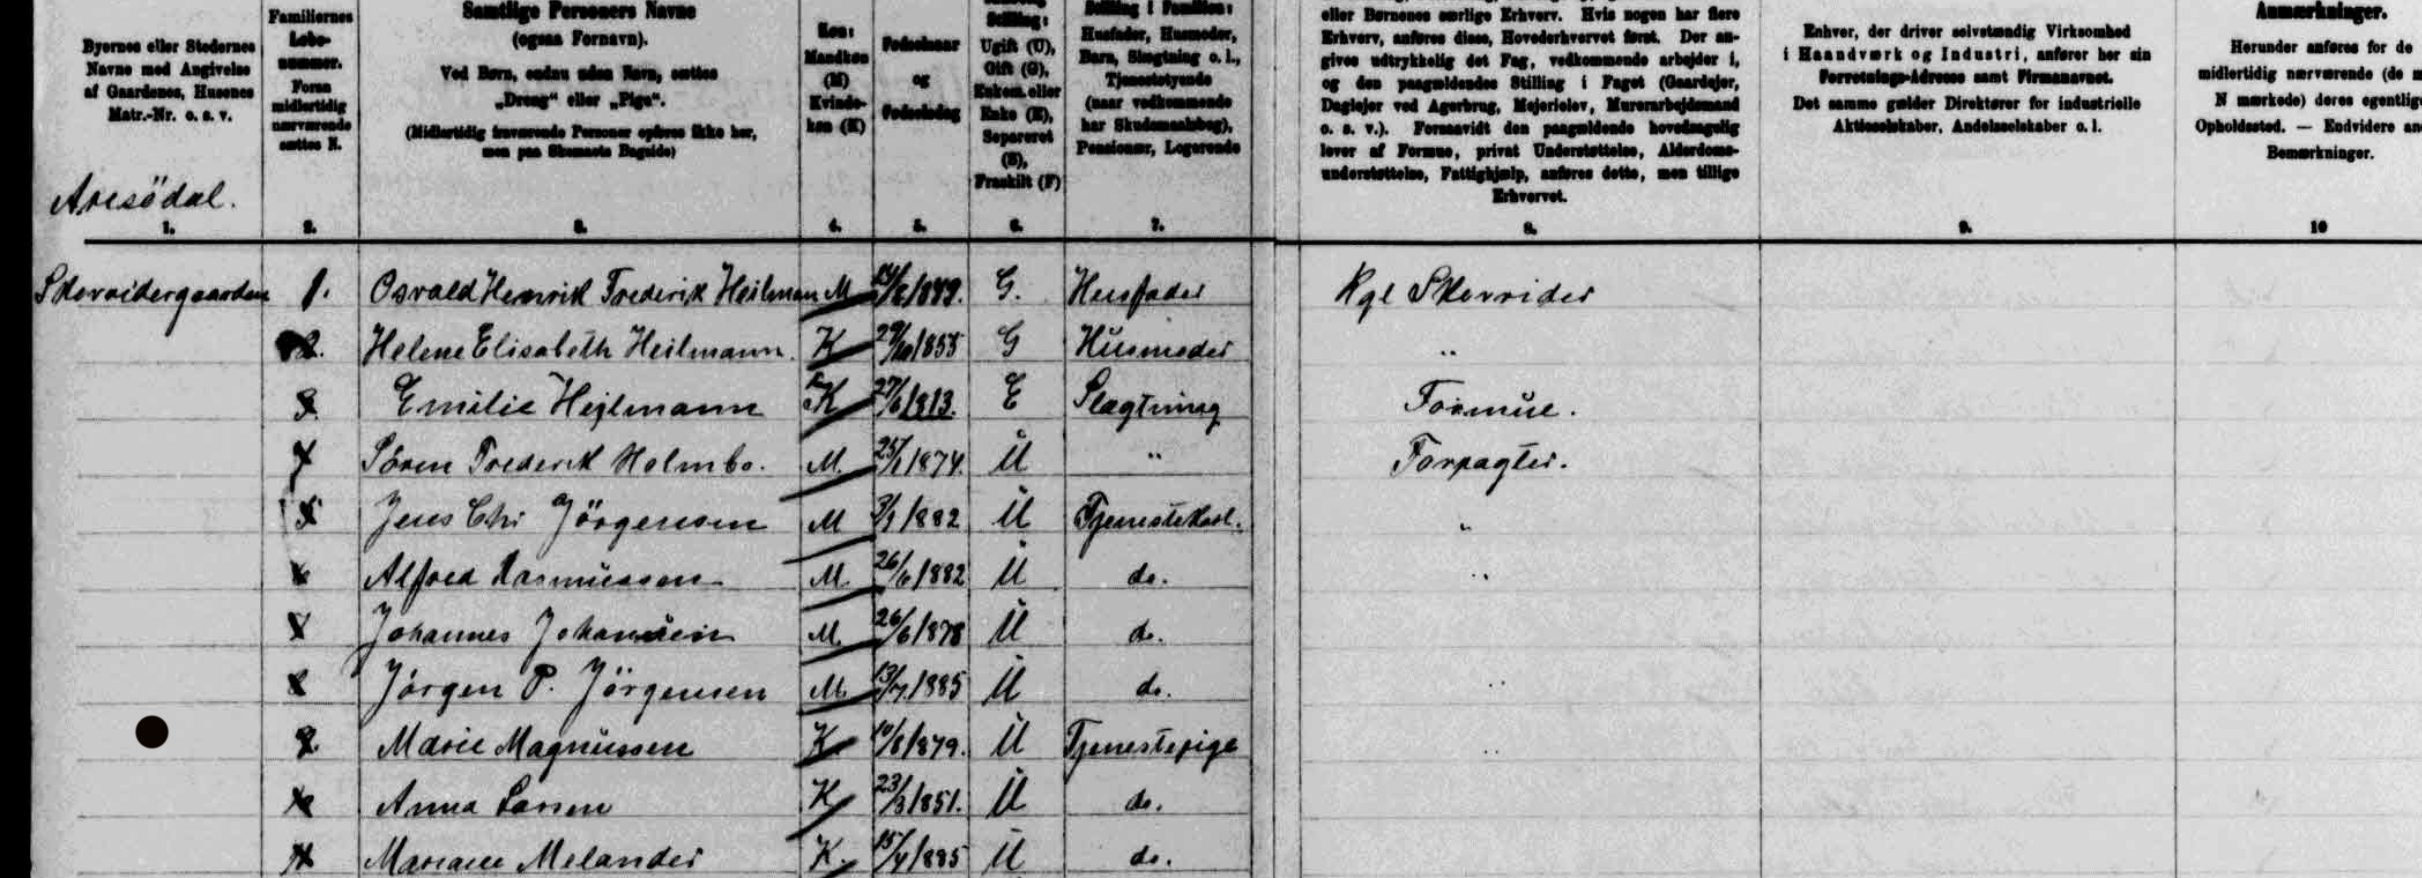 Byernes eller Stedernes
Navne med Angivelse
af Gaardenes, Husenes
Matr.-Nr. o. s. v.
Avesödal.
1.
Familiernes
Løbe-
nummer.
Foran
midlertidig
nærværende
sættes N.
2.
Samtlige Personers Navne
(ogsaa Fornavn).
Ved Børn, endnu uden Navn, sættes
„Dreng“ eller „Pige“.
(Midlertidig fraværende Personer opføres ikke her,
men paa Skemaets Bagside)
3.
Køn:
Mandkøn
(M)
Kvinde-
køn (K)
4.
Fødselsaar
og
Fødselsdag
5.
Stilling:
Ugift (U),
Gift (G),
Enkem. eller
Enke (E),
Separeret
(S),
Fraskilt (F)
6.
Stilling i Familien:
Husfader, Husmoder,
Barn, Slægtning o. l.,
Tjenestetyende
(naar vedkommende
har Skudsmaalsbog),
Pensionær, Logerende
7.
eller Børnenes særlige Erhverv. Hvis nogen har flere
Erhverv, anføres disse, Hovederhvervet først. Der an-
gives udtrykkelig det Fag, vedkommende arbejder i,
og den paagældendes Stilling i Faget (Gaardejer,
Daglejer ved Agerbrug, Mejerielev, Murerarbejdsmand
o. s. v.). Forsaavidt den paagældende hovedsagelig
lever af Formue, privat Understøttelse, Alderdoms-
understøttelse, Fattighjælp, anføres dette, men tillige
Erhvervet.
8.
Enhver, der driver selvstændig Virksomhed
i Haandværk og Industri, anfører her sin
Forretnings-Adresse samt Firmanavnet.
Det samme gælder Direktører for industrielle
Aktieselskaber, Andelsselskaber o. l.
9.
Anmærkninger.
Herunder anføres for de
midlertidig nærværende (de m
N mærkede) deres egentlig
Opholdssted. — Endvidere an
Bemærkninger.
10
Skovridergaarden 1. Osvald Henrik Frederik Heilman M 1849. G. Husfader Kgl Skovrider
2. Helene Elisabeth Heilmann. K 29/10 1855 G Husmoder "
3. Emilie Hejlmann K 27/6 1813. E Slægtning Formue.
4 Sören Frederik Holmbo. M. 25/1 1874. U " Forpagter.
5 Jens Chr Jörgensen M 3/9 1882 U Tjenestekarl. "
6 Alfred Rasmussen M. 26/6 1882 U do. "
7 Johannes Johansen M. 26/6 1878 U do.
8 Jörgen P. Jörgensen M. 13/7 1885 U do. "
9. Marie Magnussen K 10/8 1879. U Tjenestepige "
10 Anna Larsen K 23/3 1851. U do.
11 Mariane Melander K. 15/4 1885 U do.